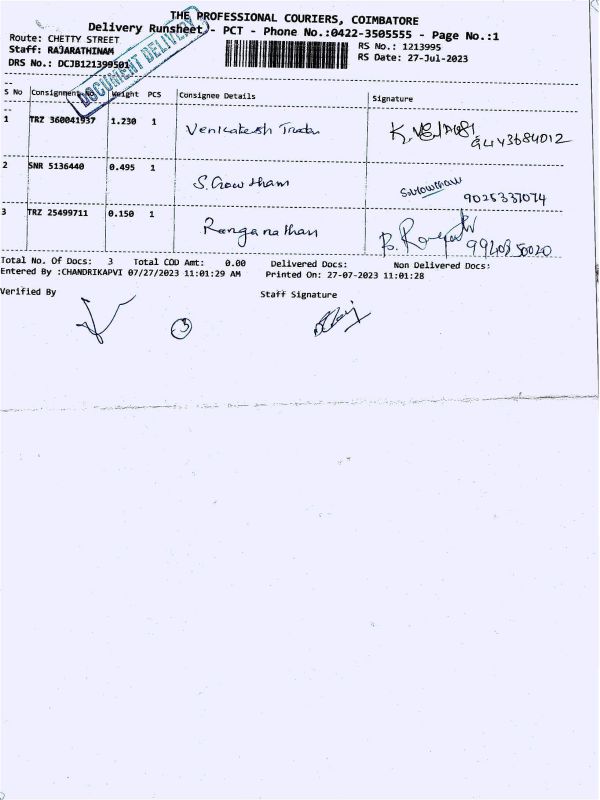 THE PROFESSIONAL COURIERS, COIMBATORE
Delivery Runsheet - PCT - Phone No.:0422-3505555 - Page No.:1
Route: CHETTY STREET
RS No.: 1213995
Staff: RAJARATHINAM
RS Date: 27-Jul-2023
DRS No.: DCJB121399501
DOCUMENT DELIVERY
S No Consignment No Weight PCS Consignee Details Signature
1 TRZ 360041937 1.230 1 Venkatesh 9443684012
2 SNR 5136440 0.495 1 S. Gowtham 9025337074
3 TRZ 25499711 0.150 1 Ranganathan
Total No. Of Docs: 3 Total COD Amt: 0.00 Delivered Docs: Non Delivered Docs:
Entered By :CHANDRIKAPVI 07/27/2023 11:01:29 AM Printed On: 27-07-2023 11:01:28
Verified By Staff Signature
3